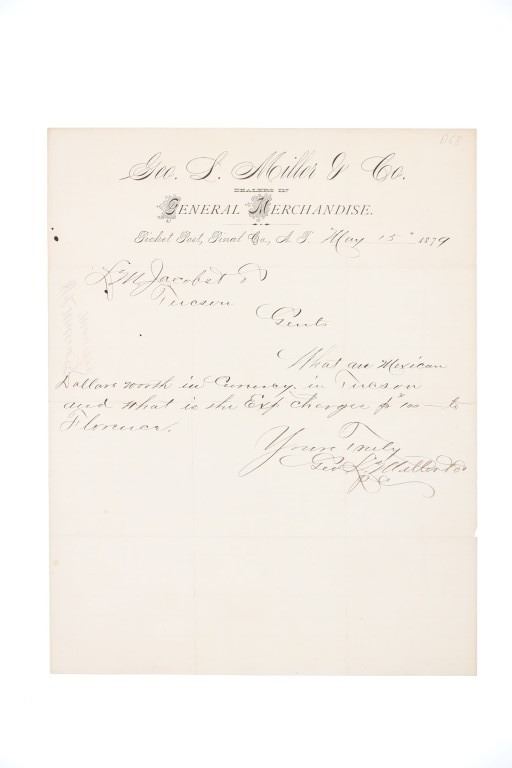 Geo. S. Miller & Co.
DEALERS IN
GENERAL MERCHANDISE.
Picket Post, Pinal Co., A. T. May 15" 1879
L M Jacobs &
Tucson
Gents
What are Mexican
Dollars worth in Currency in Tucson
and what is the Exp Charges pr 100 — to
Florence.
Yours Truly
Geo S Miller & Co